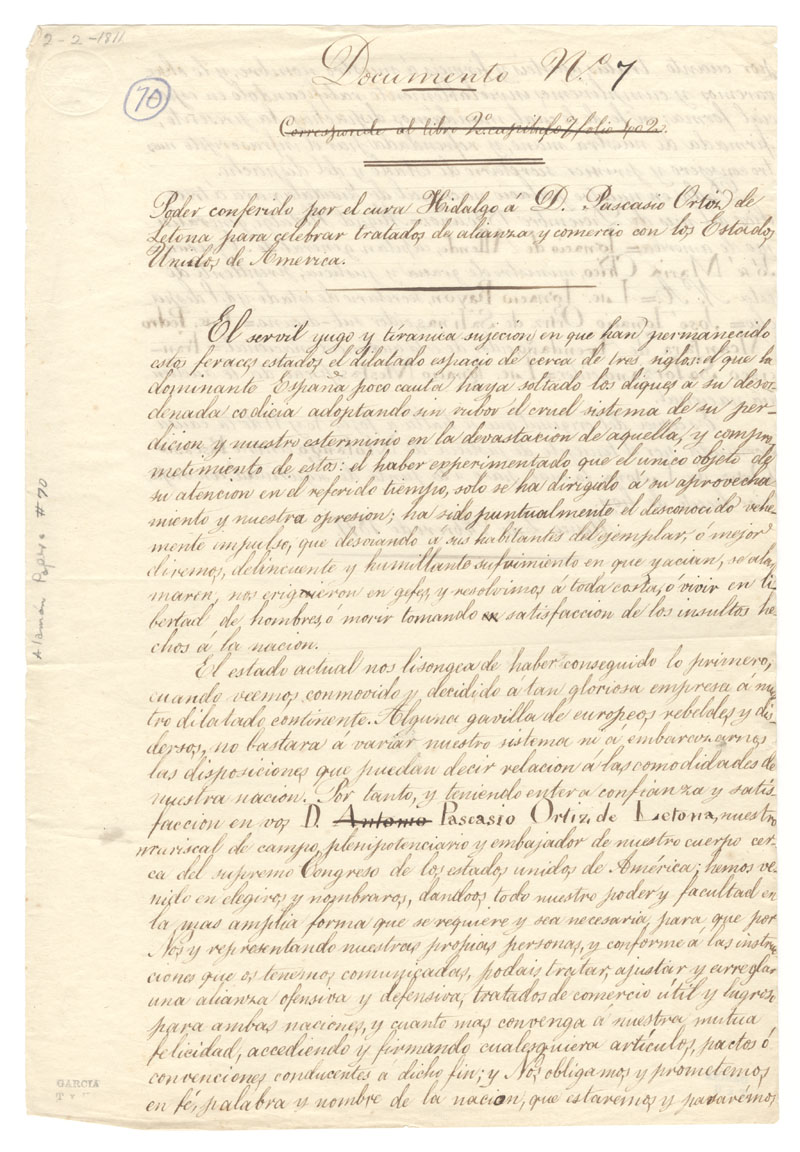 2-2-1811
Documento N.º 7
70
Corresponde al libro 2º capitulo 7 folio 402.
Poder conferido por el cura Hidalgo á D. Pascasio Ortiz de
Letona para celebrar tratados de alianza y comercio con los Estados
Unidos de America.
El servil yugo y tiranica sujecion en que han permanecido
estos feraces estados el dilatado espacio de cerca de tres siglos: el que la
dominante España poco cauta haya soltado los diques á su desor-
denada codicia adoptando sin rubor el cruel sistema de su per-
dicion y nuestro esterminio en la devastacion de aquella, y compro
metimiento de estos: el haber experimentado que el unico objeto de
su atencion en el referido tiempo, solo se ha dirigido á su aprovecha
miento y nuestra opresion; ha sido puntualmente el desconocido vehe-
mente impulso, que desviando á sus habitantes del ejemplar, ó mejor
diremos, delincuente y humillante sufrimiento en que yacian, se ala
maren, nos erigieron en gefes, y resolvimos á toda costa, ó vivir en li-
bertad de hombres, ó morir tomando satisfaccion de los insultos he-
chos á la nacion.
El estado actual nos lisongea de haber conseguido lo primero,
cuando vemos conmovido y decidido á tan gloriosa empresa á nues
tro dilatado continente. Alguna gavilla de europeos rebeldes y dis-
dersos, no bastara á variar nuestro sistema ni á embarazarnos
las disposiciones que puedan decir relacion a las comodidades de
nuestra nacion. Por tanto, y teniendo entera confianza y satis-
faccion en vos D. Antonio Pascasio Ortiz de Letona, nuestro
mariscal de campo, plenipotenciario y embajador de nuestro cuerpo cer-
ca del supremo Congreso de los estados unidos de América; hemos ve-
nido en elegiros y nombraros, dandoos todo nuestro poder y facultad en
la mas amplia forma que se requiere y sea necesaria, para que por
Nos y representando nuestras propias personas, y conforme á las instru-
ciones que os tenemos comunicadas, podais tratar, ajustar y arreglar
una alianza ofensiva y defensiva, tratados de comercio útil y lugroso
para ambas naciones, y cuanto mas convenga á nuestra mutua
felicidad, accediendo y firmando cualesquiera artículos, pactos ó
convenciones conducentes a dicho fin; y Nos obligamos y prometemos
en fé, palabra y nombre de la nacion, que estaremos y pasarémos
Alaman Papers #70
GARCIA